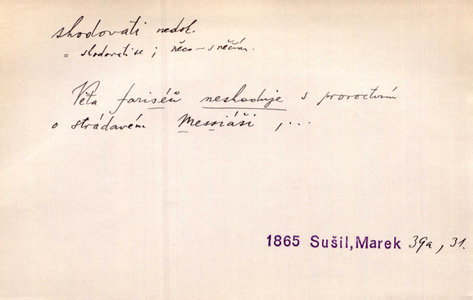 shodovati nedok.
= shodovati se ; něco – s něčím.
Věta fariséů neshoduje s proroctvím
o strádavém Messiáši , ...
1865 Sušil, Marek 39a, 31.